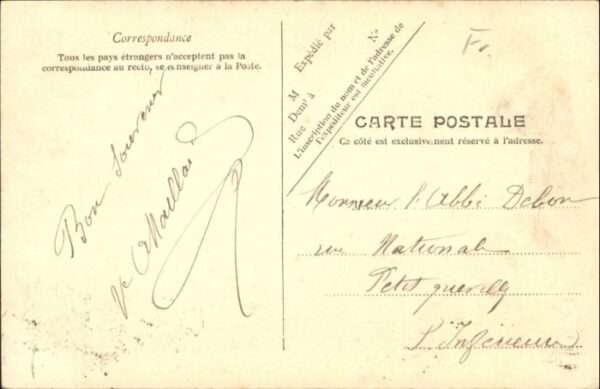 Correspondance
Tous les pays étrangers n'acceptent pas la
correspondance au recto, se renseigner à la Poste.
Bon souvenir
Expédié par
M
Demt à
Rue
No
L'inscription du nom et de l'adresse de
l'expéditeur est facultative.
CARTE POSTALE
Ce côté est exclusivement réservé à l'adresse.
Monsieur l'Abbé
rue Nationale
Petit quevilly
S. Inférieure